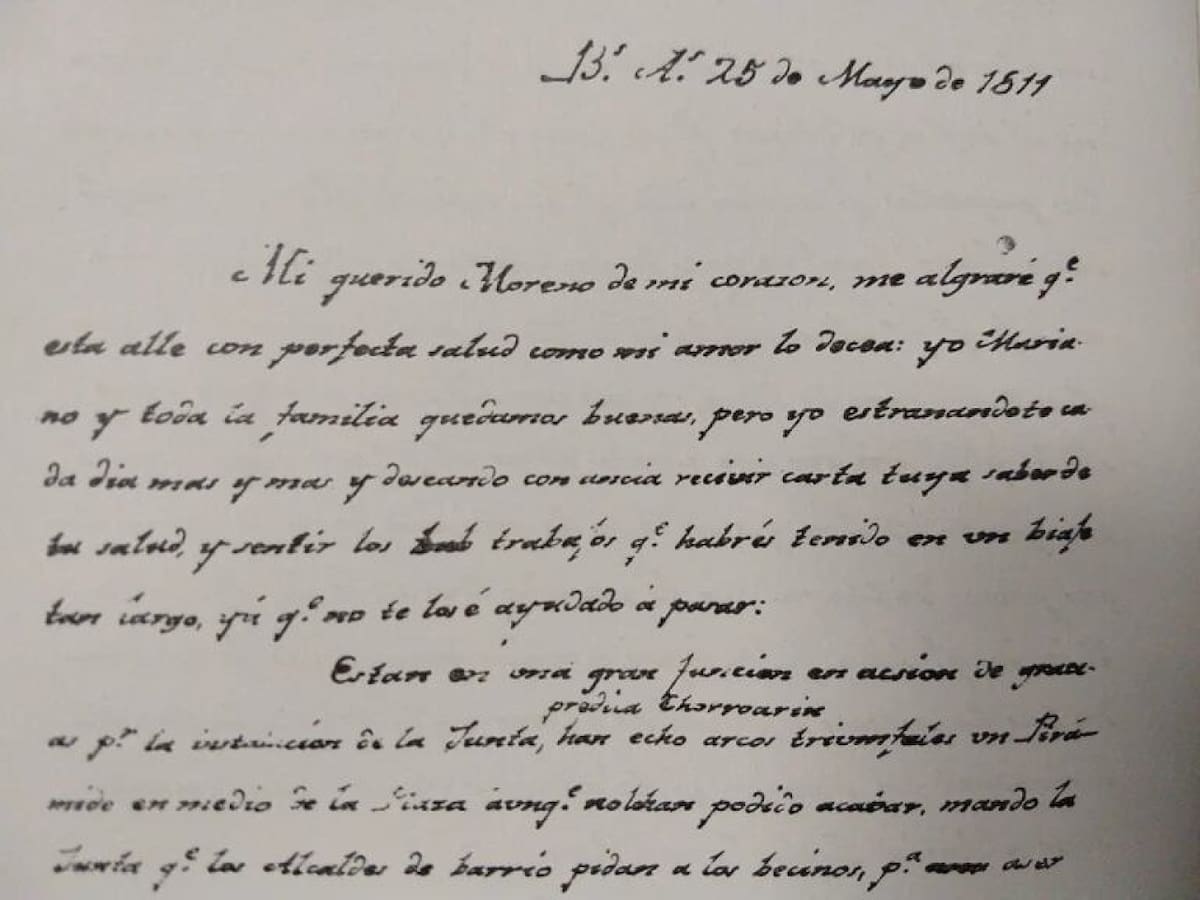 B.ˢ A.ˢ 25 de Mayo de 1811
Mi querido Moreno de mi corazon, me algraré q.ᵉ
esta alle con perfecta salud como mi amor lo decea: yo Maria-
no y toda la familia quedamos buenos, pero yo estranandote ca-
da dia mas y mas y deseando con ancia recivir carta tuya saber de
tu salud, y sentir los trabajos q.ᵉ habrés tenido en un biaje
tan largo, yá q.ᵉ no te los é ayudado á pasar:
Estan en una gran funcion en acsion de
predica Chorroarin
as p.ʳ la de la Junta, han echo arcos triumfales un Pirá-
mide en medio de la Plaza aunq.ᵉ no podido acavar, mando la
Junta q.ᵉ los Alcaldes de barrio pidan a los becinos, p.ᵃ